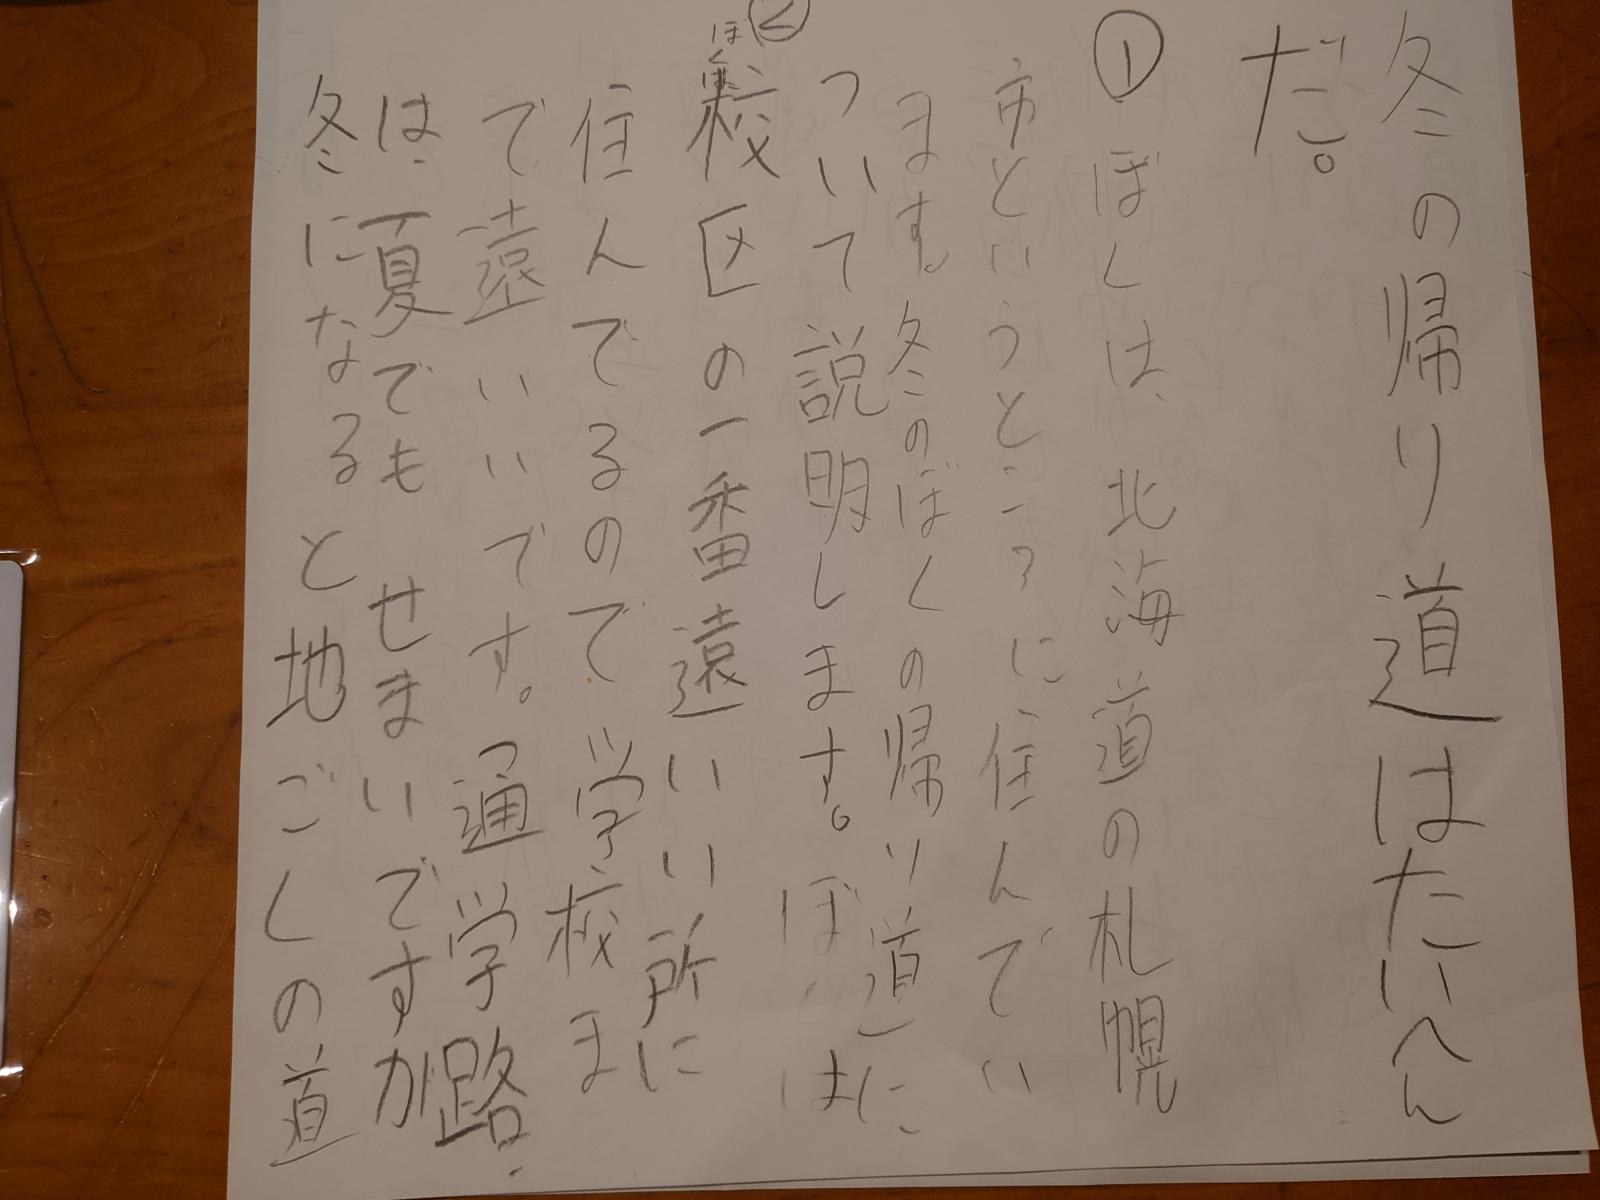 冬の帰り道はたいへん
だ。
①ぼくは、北海道の札幌
市というところに住んでい
ます。冬のぼくの帰り道に
ついて説明します。ぼくは
②
ぼく
校区の一番遠いい所に
住んでるので学校ま
で遠いいです。通学路
は、夏でもせまいですが
冬になると地ごくの道